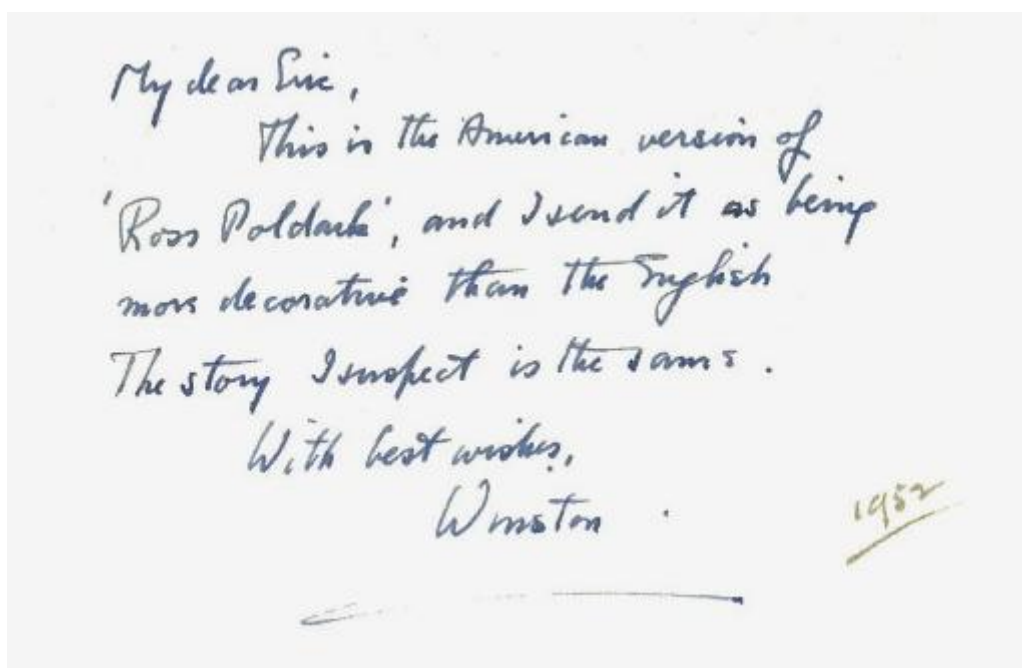 My dear Eric,
This is the American version of
'Ross Poldark', and I send it as being
more decorative than the English
The story I suspect is the same.
With best wishes,
Winston.
1952